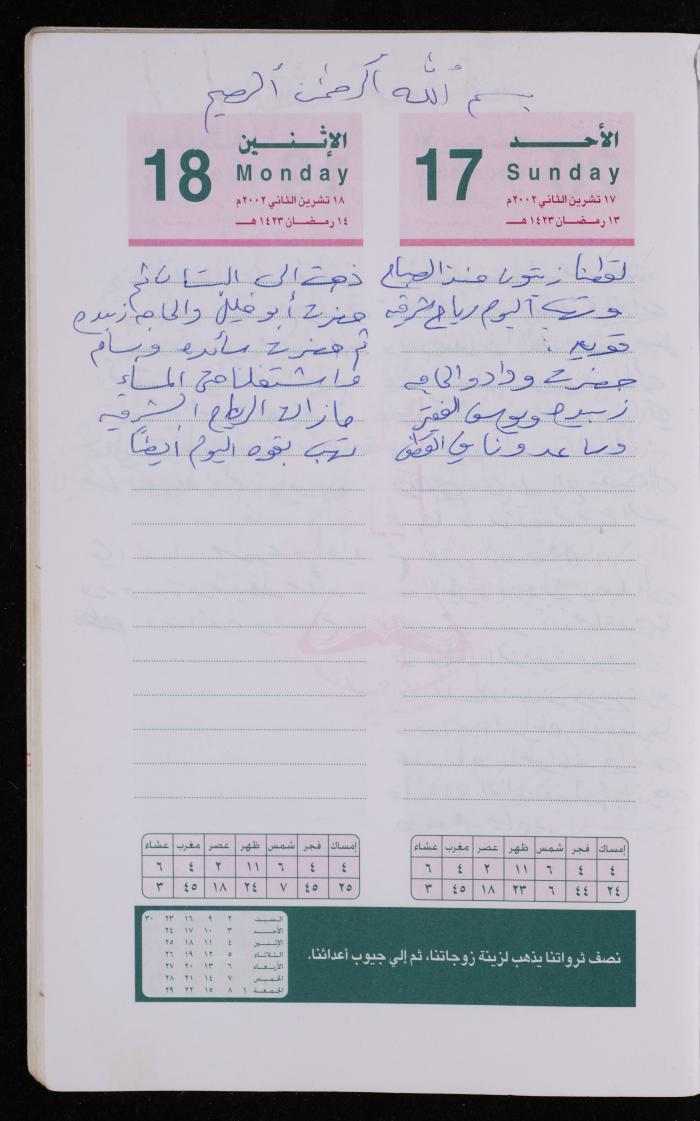 بسم الله الرحمن الرحيم
الأحــد
17
Sunday
١٧ تشرين الثاني ٢٠٠٢م
١٣ رمضان ١٤٢٣ هـ
لقطنا زيتون منذ الصباح
وتهب اليوم رياح شرقيه
قويه .
حضرت وداد والحاجه
زبيده ويوسف الفقير
وساعدونا في القطف
إمساك فجر شمس ظهر عصر مغرب عشاء
٤ ٤ ٦ ١١ ٢ ٤ ٦
٢٤ ٤٤ ٦ ٢٣ ١٨ ٤٥ ٣
الإثـنـين
18
Monday
١٨ تشرين الثاني ٢٠٠٢م
١٤ رمضان ١٤٢٣ هـ
ذهبت الى البستان ثم
حضرت أبو خليل والحاجه زبيده
ثم حضرت سائده وبسام
واشتغلنا حتى المساء
مازالت الرياح الشرقيه
تهب بقوه اليوم أيضاً
إمساك فجر شمس ظهر عصر مغرب عشاء
٤ ٤ ٦ ١١ ٢ ٤ ٦
٢٥ ٤٥ ٧ ٢٤ ١٨ ٤٥ ٣
نصف ثرواتنا يذهب لزينة زوجاتنا، ثم إلي جيوب أعدائنا.
السبت ٢ ٩ ١٦ ٢٣ ٣٠
الأحد ٣ ١٠ ١٧ ٢٤
الإثنين ٤ ١١ ١٨ ٢٥
الثلاثاء ٥ ١٢ ١٩ ٢٦
الأربعاء ٦ ١٣ ٢٠ ٢٧
الخميس ٧ ١٤ ٢١ ٢٨
الجمعة ١ ٨ ١٥ ٢٢ ٢٩